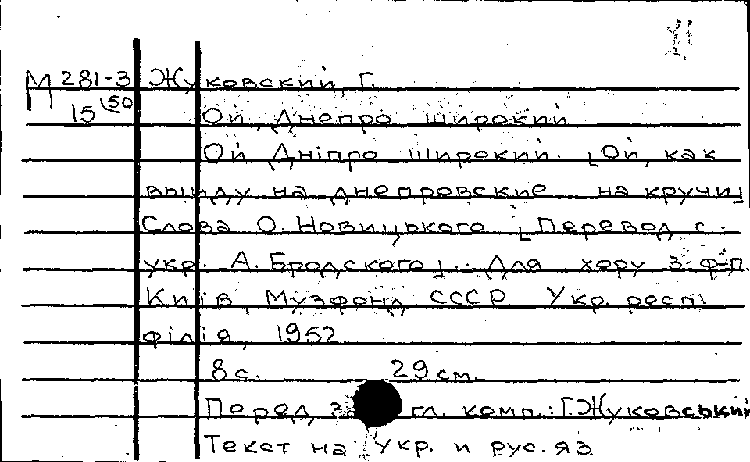 М 281-3 Жуковский, Г.
15 50 Ой, Днепро широкий
Ой Дніпро широкий. [Ой, как
выйду на днепровские на кручи]
Слова О. Новицького [Перевод с
укр. А. Бродского]. Для хору з ф-п.
Київ, Музфонд СССР Укр. респ.
філія, 1952
8 с. 29 см.
Перед гл. комп.: Г. Жуковський
Текст на укр. и рус. яз.